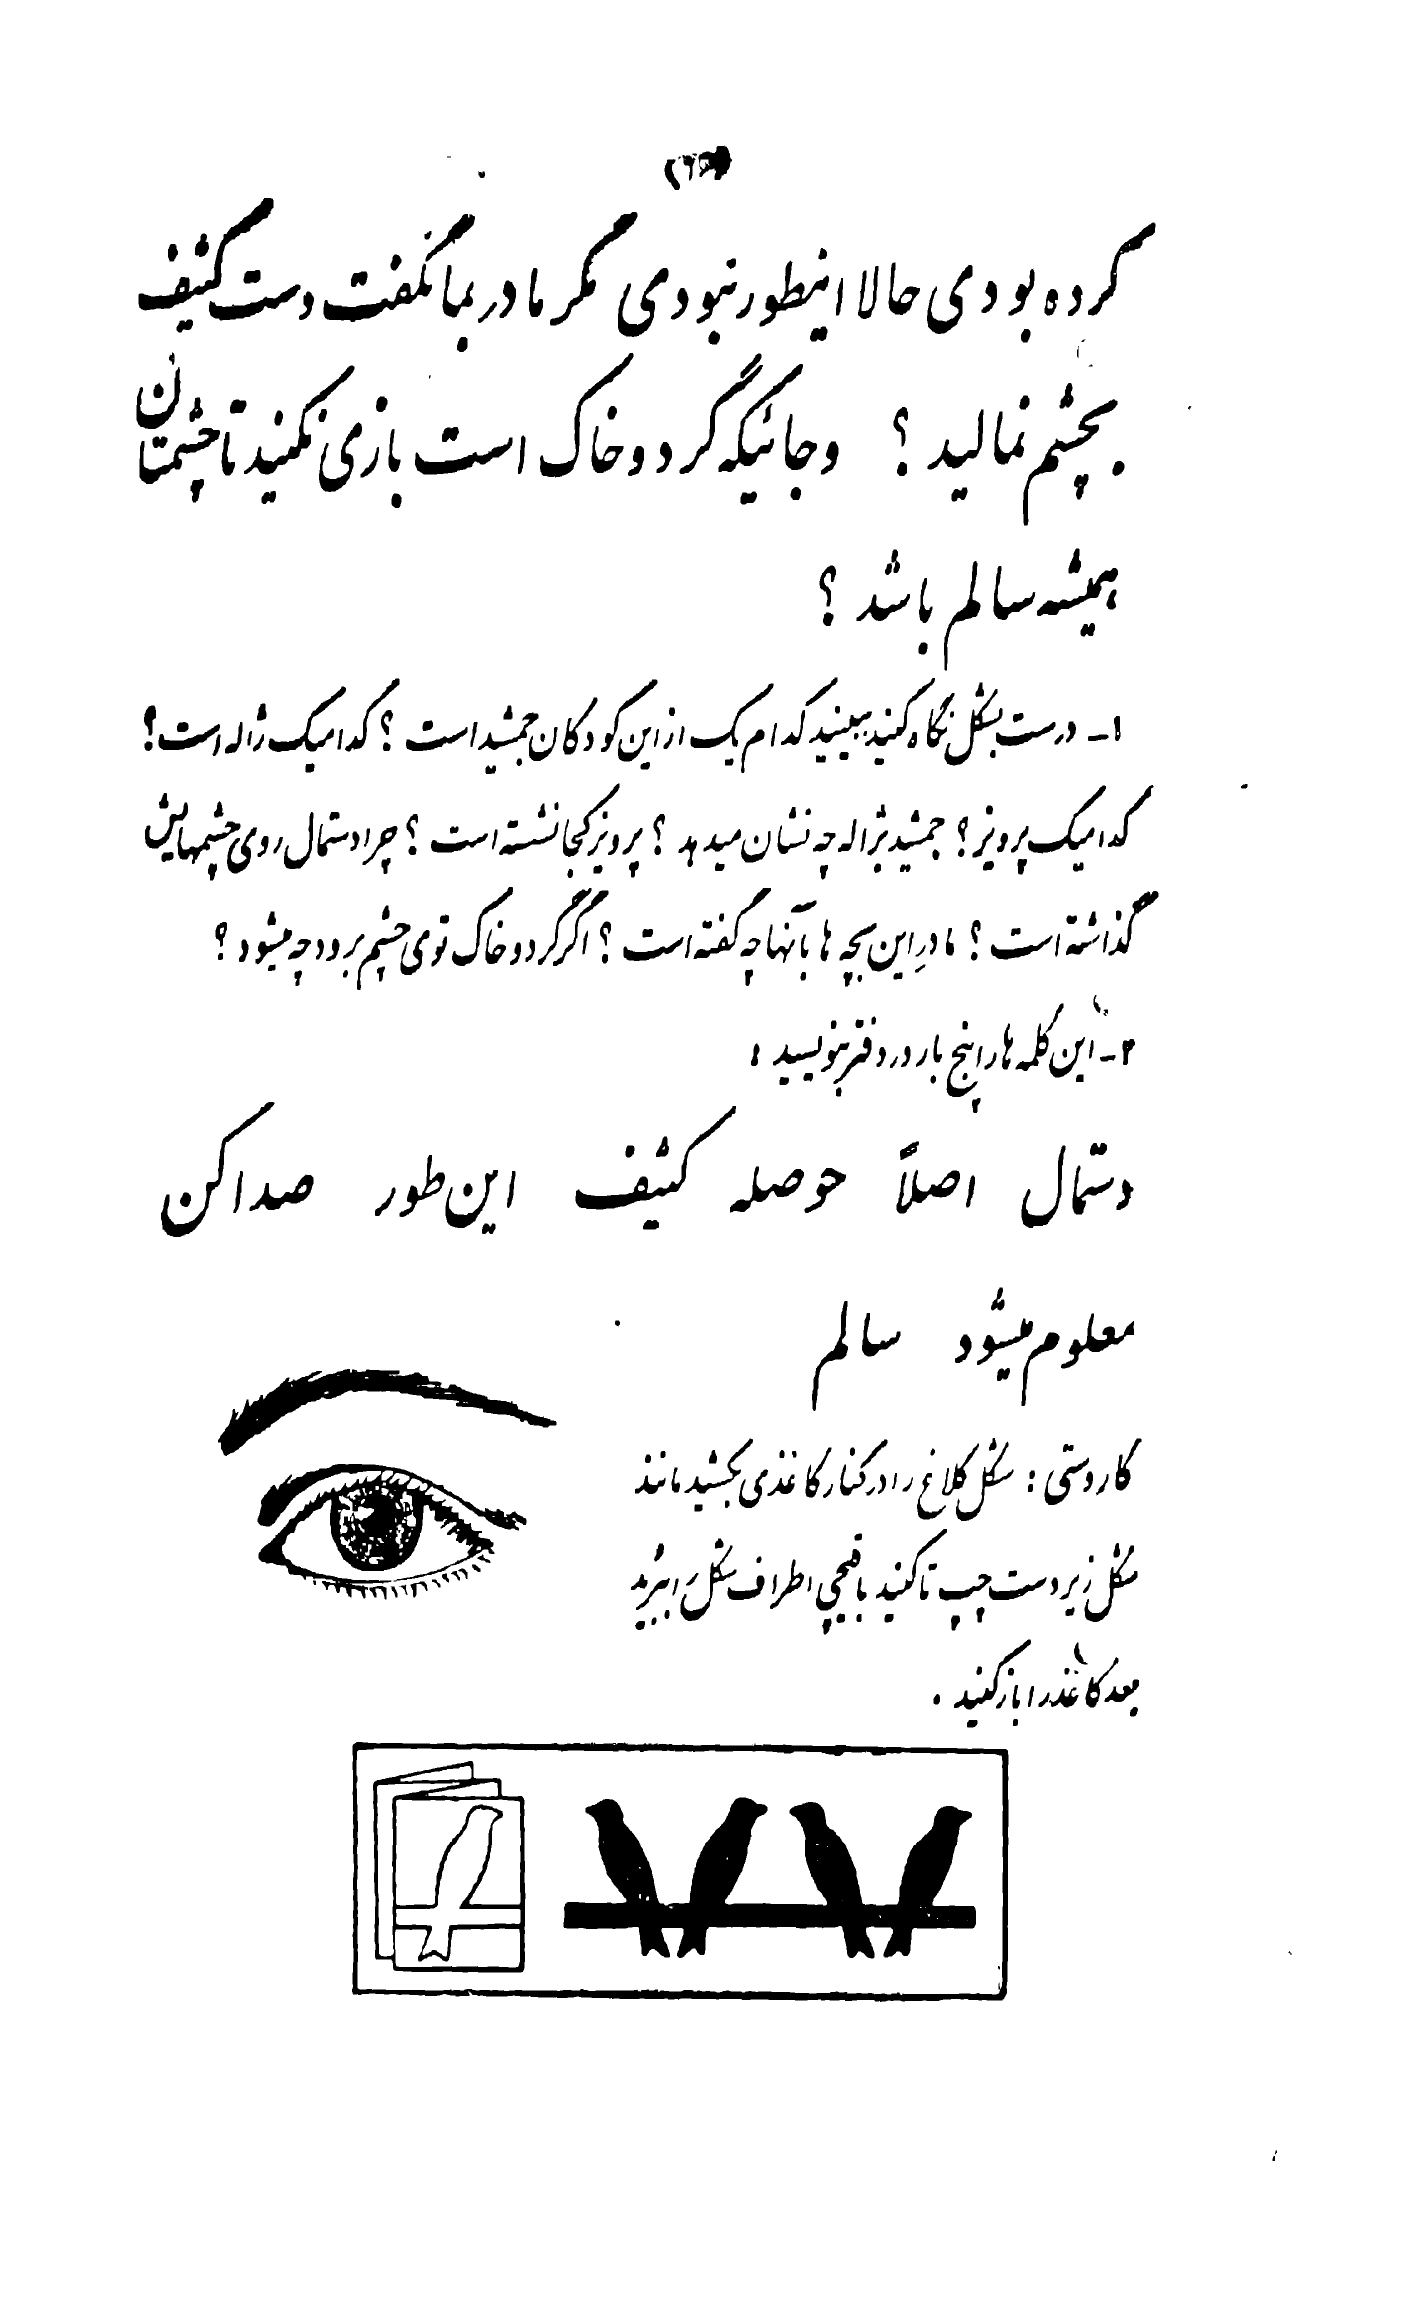 کرده بودی حالا اینطور نبودی مگر مادر بما نگفت دست کثیف
بچشم نمالید ؟ وجائیکه گرد و خاک است بازی نکنید تا چشمتان
همیشه سالم باشد ؟
۱ـ درست بشکل نگاه کنید ببینید کدام یک از این کودکان جمشید است ؟ کدامیک ژاله است ؟
کدامیک پرویز ؟ جمشید بژاله چه نشان میدهد ؟ پرویز کجا نشسته است ؟ چرا دستمال روی چشمهایش
گذاشته است ؟ مادرِ این بچه ها بآنها چه گفته است ؟ اگر گرد و خاک توی چشم برود چه میشود ؟
۲ـ این کلمه ها را پنج بار در دفتر بنویسید :
دستمال اصلاً حوصله کثیف این طور صدا کن
معلوم میشود سالم
کار دستی : شکل کلاغ را در کنار کاغذی بکشید مانند
شکل زیر دست چپ تا کنید با قیچی اطراف شکل را ببرید
بعد کاغذ را باز کنید .